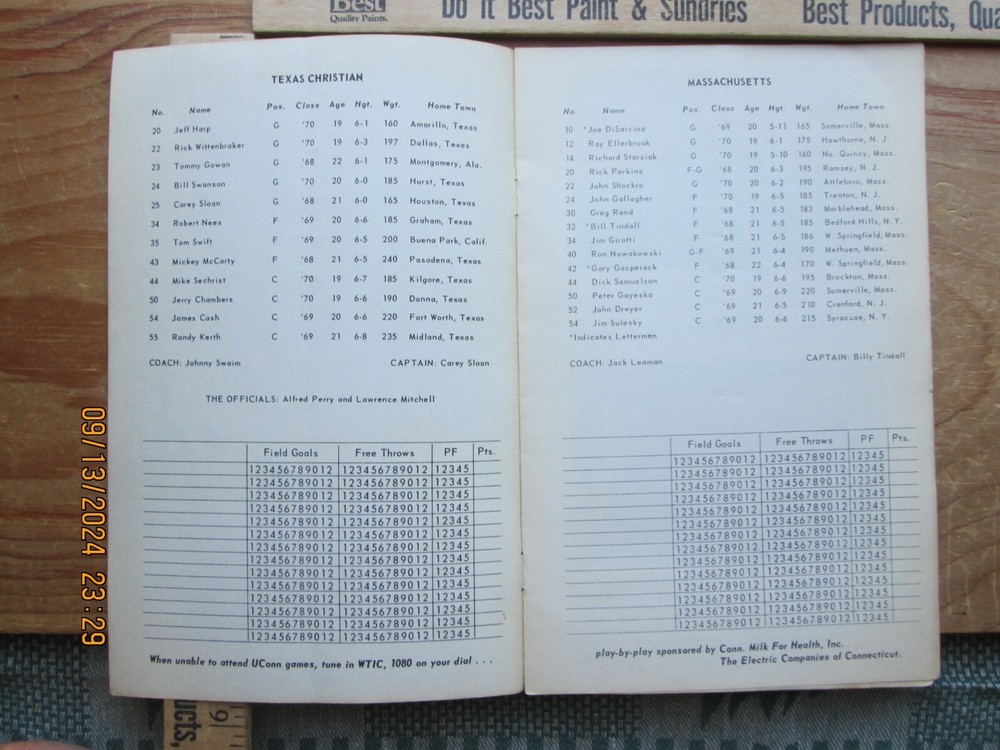 Best
Quality Paints.
Do it Best Paint & Sundries
Best Products, Qua
TEXAS CHRISTIAN
No. Name Pos. Class Age Hgt. Wgt. Home Town
20 Jeff Harp G '70 19 6-1 160 Amarillo, Texas
22 Rick Wittenbraker G '70 19 6-3 197 Dallas, Texas
23 Tommy Gowan G '68 22 6-1 175 Montgomery, Ala.
24 Bill Swanson G '70 20 6-0 185 Hurst, Texas
25 Carey Sloan G '68 21 6-0 165 Houston, Texas
34 Robert Nees F '69 20 6-6 185 Graham, Texas
35 Tom Swift F '69 20 6-5 200 Buena Park, Calif.
43 Mickey McCarty F '68 21 6-5 240 Pasadena, Texas
44 Mike Sechrist C '70 19 6-7 185 Kilgore, Texas
50 Jerry Chambers C '70 19 6-6 190 Donna, Texas
54 James Cash C '69 20 6-6 220 Fort Worth, Texas
55 Randy Kerth C '69 21 6-8 235 Midland, Texas
COACH: Johnny Swaim CAPTAIN: Carey Sloan
THE OFFICIALS: Alfred Perry and Lawrence Mitchell
Field Goals Free Throws PF Pts.
123456789012 123456789012 12345
123456789012 123456789012 12345
123456789012 123456789012 12345
123456789012 123456789012 12345
123456789012 123456789012 12345
123456789012 123456789012 12345
123456789012 123456789012 12345
123456789012 123456789012 12345
123456789012 123456789012 12345
123456789012 123456789012 12345
123456789012 123456789012 12345
123456789012 123456789012 12345
123456789012 123456789012 12345
123456789012 123456789012 12345
When unable to attend UConn games, tune in WTIC, 1080 on your dial . . .
MASSACHUSETTS
No. Name Pos. Class Age Hgt. Wgt. Home Town
10 *Joe DiSarcina G '69 20 5-11 165 Somerville, Mass.
12 Ray Ellerbrook G '70 19 6-1 175 Hawthorne, N. J.
14 Richard Starsiak G '70 19 5-10 160 No. Quincy, Mass.
20 Rick Perkins F-G '68 20 6-3 195 Ramsey, N. J.
22 John Shockro G '70 20 6-2 190 Attleboro, Mass.
24 John Gallagher F '70 19 6-5 185 Trenton, N. J.
30 Greg Rand F '68 21 6-5 183 Marblehead, Mass.
32 *Bill Tindall F '68 21 6-5 185 Bedford Hills, N. Y.
34 Jim Girotti F '68 21 6-5 186 W. Springfield, Mass.
40 Ron Nowakowski G-F '69 21 6-4 190 Methuen, Mass.
42 *Gary Gasperack F '68 22 6-4 170 W. Springfield, Mass.
44 Dick Samuelson C '70 19 6-6 195 Brockton, Mass.
50 Peter Gayeska C '69 20 6-9 220 Somerville, Mass.
52 John Dreyer C '69 21 6-5 210 Cranford, N. J.
54 Jim Sulesky C '69 20 6-6 215 Syracuse, N. Y.
*Indicates Lettermen
COACH: Jack Leaman CAPTAIN: Billy Tindall
Field Goals Free Throws PF Pts.
123456789012 123456789012 12345
123456789012 123456789012 12345
123456789012 123456789012 12345
123456789012 123456789012 12345
123456789012 123456789012 12345
123456789012 123456789012 12345
123456789012 123456789012 12345
123456789012 123456789012 12345
123456789012 123456789012 12345
123456789012 123456789012 12345
123456789012 123456789012 12345
123456789012 123456789012 12345
123456789012 123456789012 12345
123456789012 123456789012 12345
play-by-play sponsored by Conn. Milk For Health, Inc.
The Electric Companies of Connecticut.
09/13/2024 23:29
ucts,
9